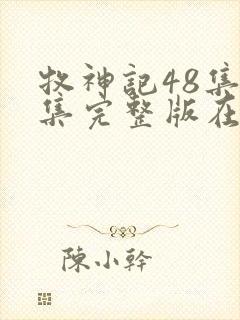 牧神記48集
集完整版在
陳小幹